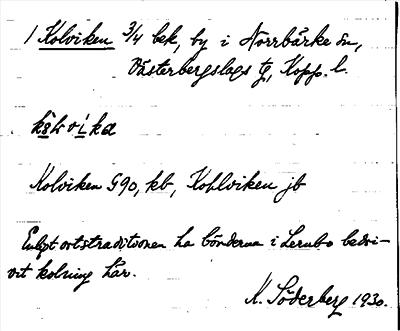 1 Kolviken 3/4 bek, by i Norrbärke sn,
Västerbergslags tg, Kopp. l.
Kolviken G90, kb, Kohlviken jb
Enligt ortstraditionen ha bönderna i Lernbo bedri-
vit kolning här.
K. Söderberg 1930.